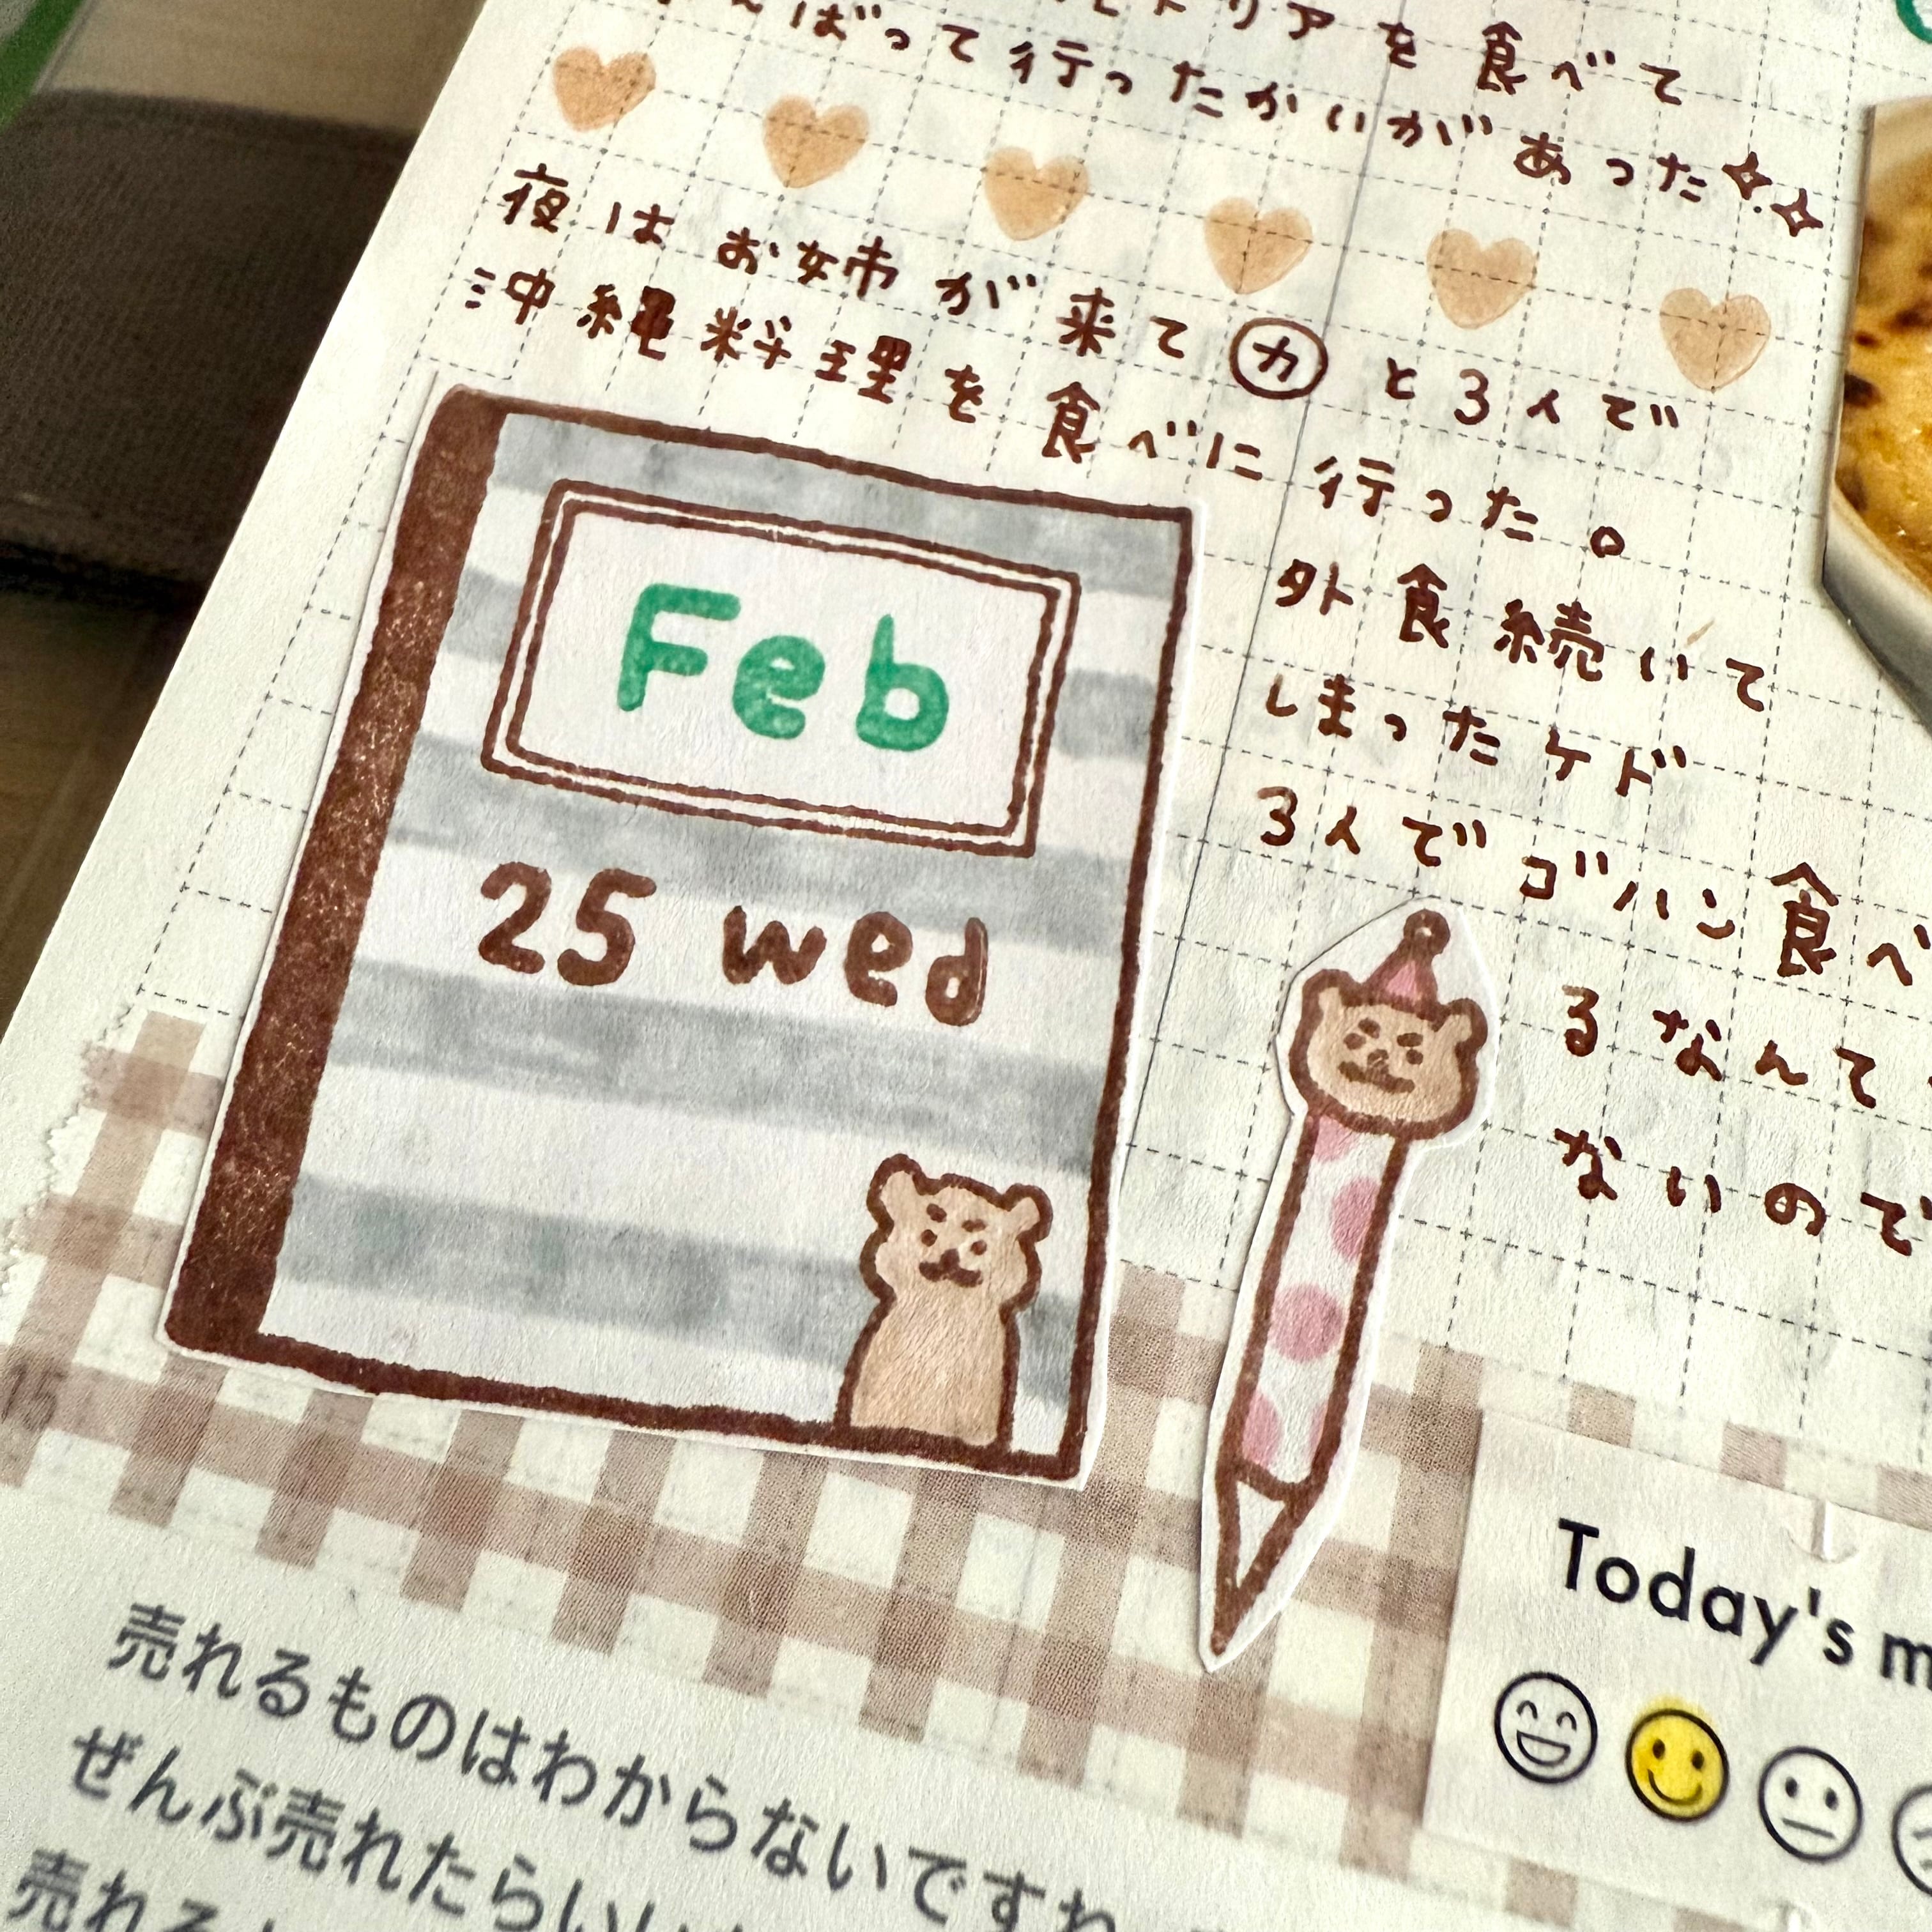 リアを食べて
ばって行ったかいがあった
夜はお姉が来てカと3人で
沖縄料理を食べに行った。
外食続いて
しまったケド
3人でゴハン食べ
るなんて
ないので
Feb
25 wed
Today's m
売れるものはわからないですね
ぜんぶ売れたらいい
売れる